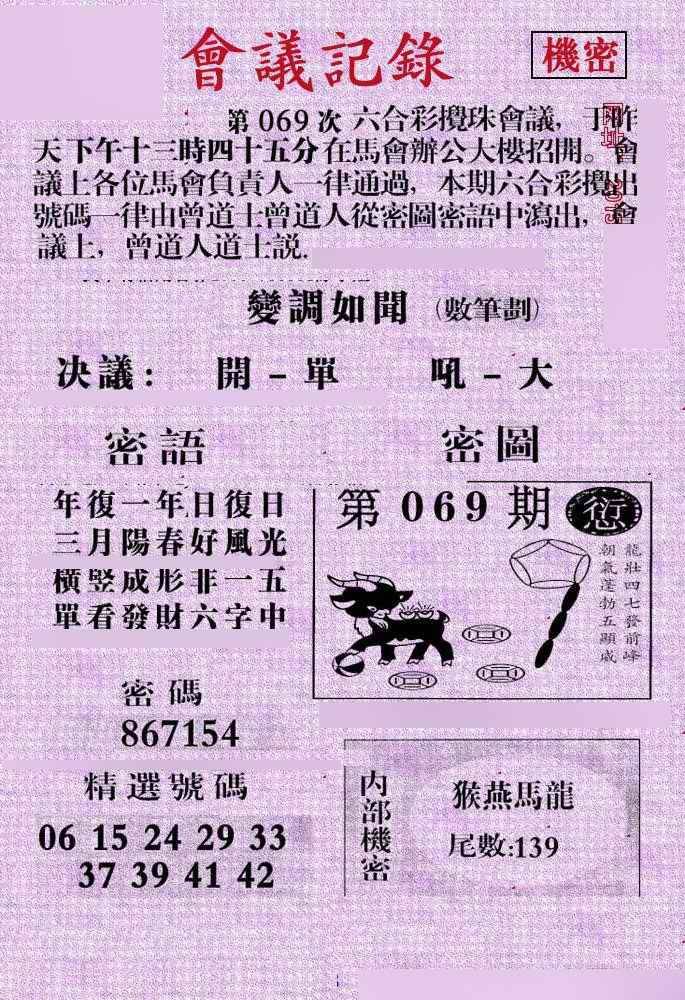 會議記錄
機密
第 069 次 六合彩攪珠會議，于昨
天下午十三時四十五分在馬會辦公大樓招開。會
議上各位馬會負責人一律通過，本期六合彩攪出
號碼一律由曾道士曾道人從密圖密語中瀉出，會
議上，曾道人道士説.
變調如聞（數筆劃）
决議： 開 － 單 吼 － 大
密語
年復一年日復日
三月陽春好風光
橫竪成形非一五
單看發財六字中
密圖
第 069 期
龍壯四七發前峰
朝氣蓬勃五顯威
密碼
867154
精選號碼
06 15 24 29 33
37 39 41 42
内部機密
猴燕馬龍
尾數:139